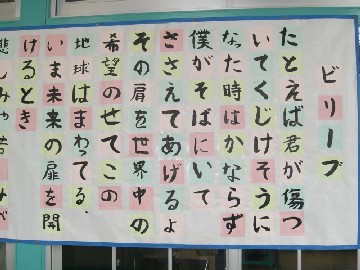 ビリーブ
たとえば君が傷つ
いてくじけそうに
なった時はかならず
僕がそばにいて
ささえてあげるよ
その肩を世界中の
希望のせてこの
地球はまわってる.
いま未来の扉を開
けるとき
悲しみや苦しみが